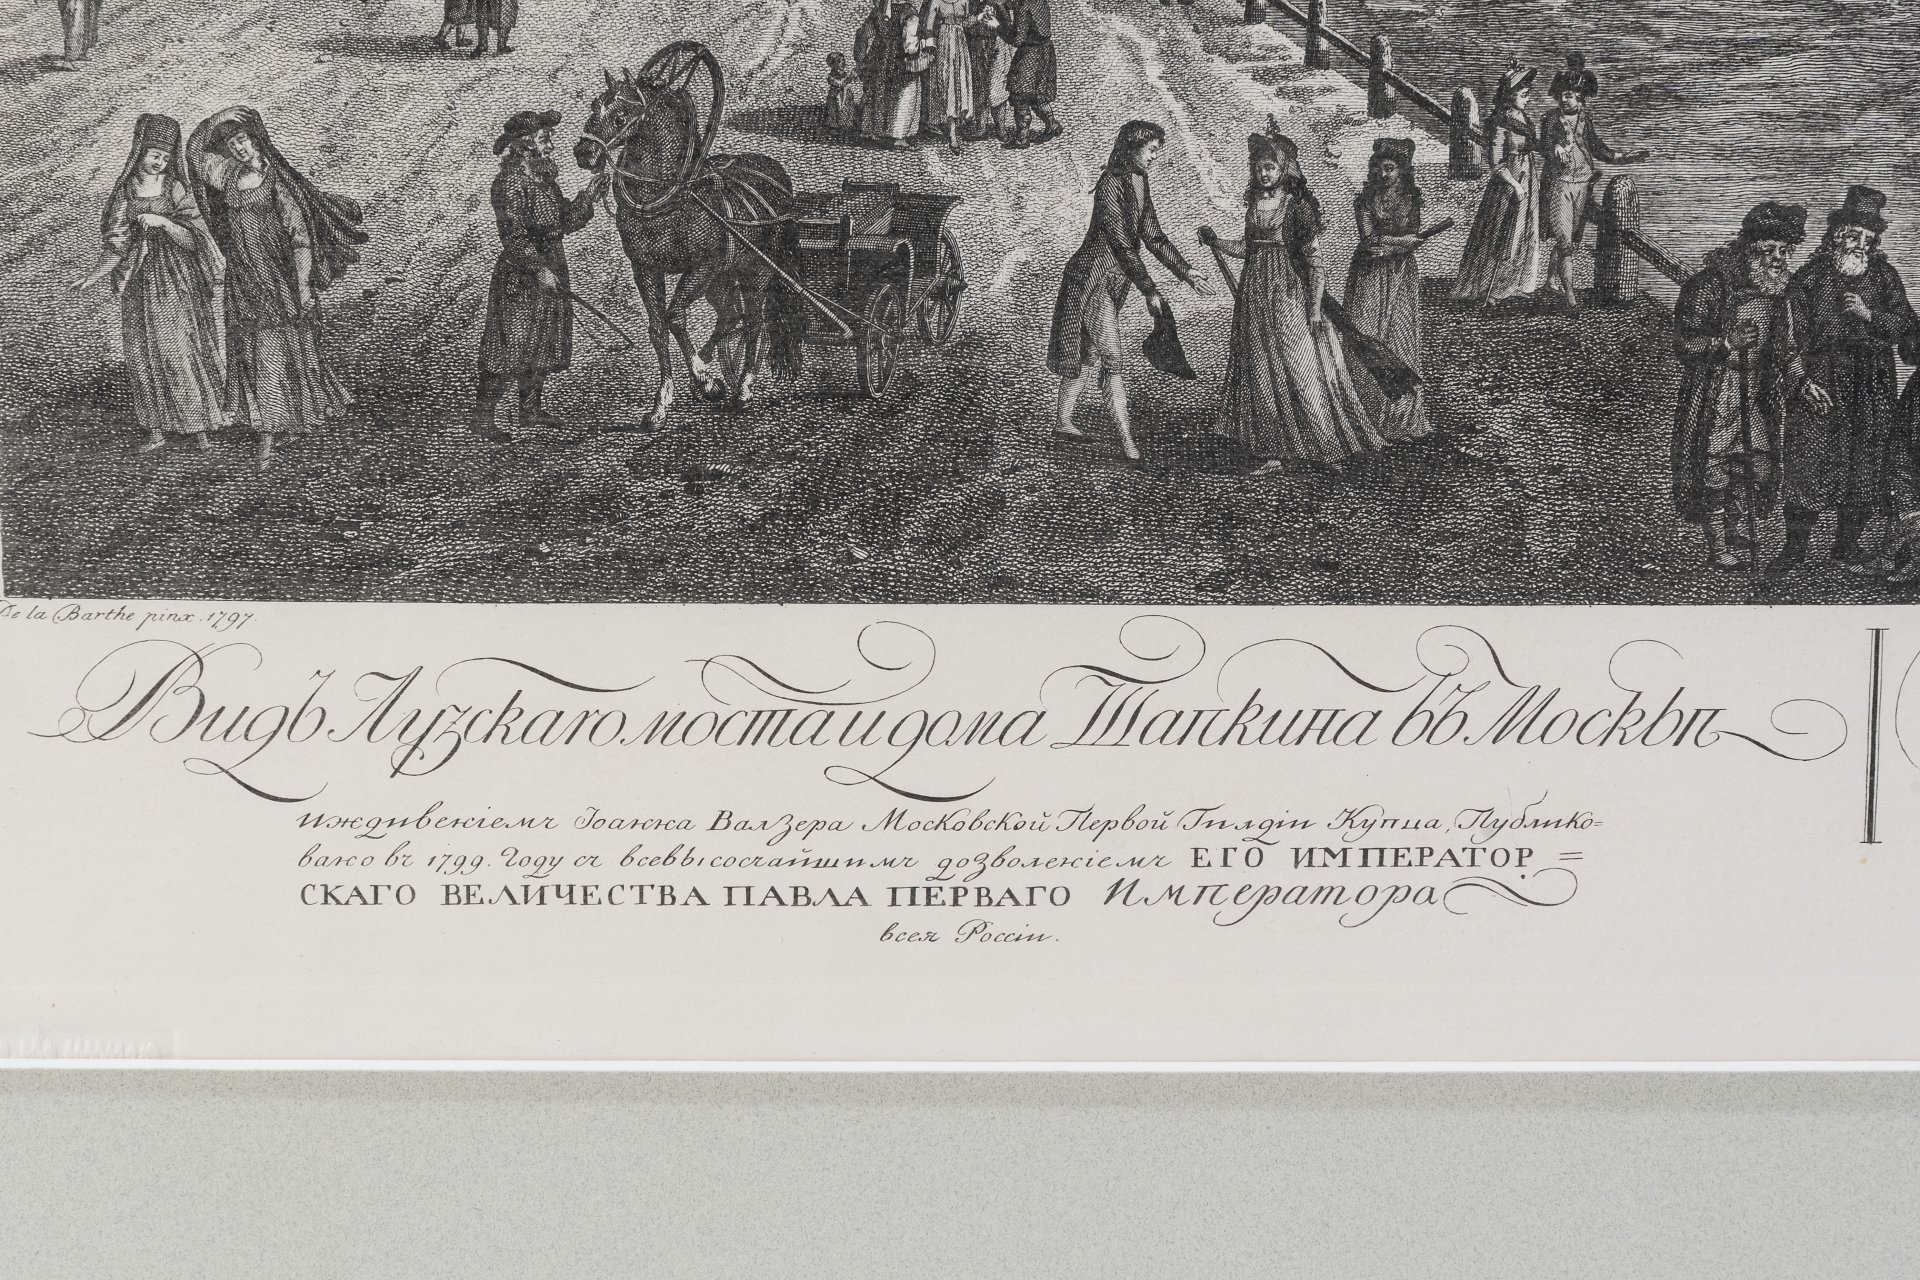 De la Barthe pinx. 1797.
Видъ Яузскаго моста и дома Шапкина въ Москвѣ
иждивенiемъ Iоанна Валзера Московской Первой Гилдiи Купца, Публико=
вано въ 1799. Году съ всевысочайшимъ дозволенiемъ ЕГО ИМПЕРАТОР=
СКАГО ВЕЛИЧЕСТВА ПАВЛА ПЕРВАГО Императора
всея Россiи.